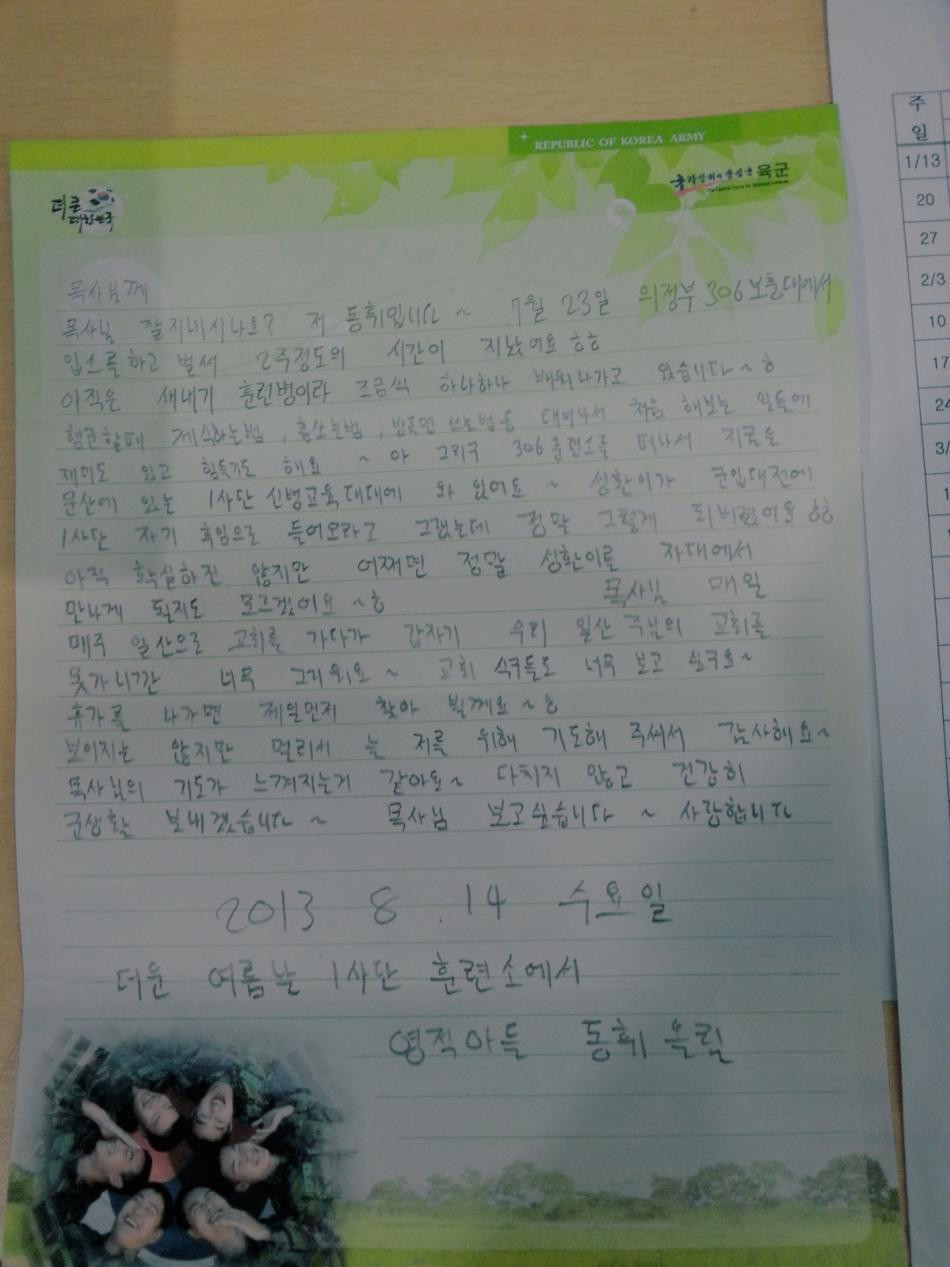 REPUBLIC OF KOREA ARMY
육군
더 큰
대한민국
목사님께
목사님 잘지내시나요? 저 동휘입니다 ~ 7월 23일 의정부 306보충대에서
입소를하고 벌써 2주정도의 시간이 지났어요 ㅎㅎ
아직은 새내기 훈련병이라 조금씩 하나하나 배워나가고 있습니다~ㅎ
행군할때 제식하는법, 총쏘는법, 방독면 쓰는법등 태어나서 처음 해보는 일들에
재미도 있고 힘들기도 해요 ~ 아 그리구 306훈련소를 떠나서 지금은
문산에 있는 1사단 신병교육대대에 와 있어요 ~ 성환이가 군입대전에
1사단 자기 후임으로 들어오라고 그랬는데 정말 그렇게 되버렸어요 ㅎㅎ
아직 확실하진 않지만 어쩌면 정말 성환이를 자대에서
만나게 될지도 모르겠어요 ~ㅎ 목사님 매일
매주 일산으로 교회를 가다가 갑자기 우리 일산 주님의 교회를
못가니간 너무 그리워요 ~ 교회 식구들도 너무 보고 싶구요~
휴가를 나가면 제일먼저 찾아 뵐께요 ~ㅎ
보이지는 않지만 멀리서 늘 저를 위해 기도해 주셔서 감사해요~
목사님의 기도가 느껴지는거 같아요~ 다치지 않고 건강히
군생활 보내겠습니다 ~ 목사님 보고싶습니다 ~ 사랑합니다
2013. 8. 14 수요일
더운 여름날 1사단 훈련소에서
영적아들 동휘 올림
주
일
1/13
20
27
2/3
10
17
24
3/